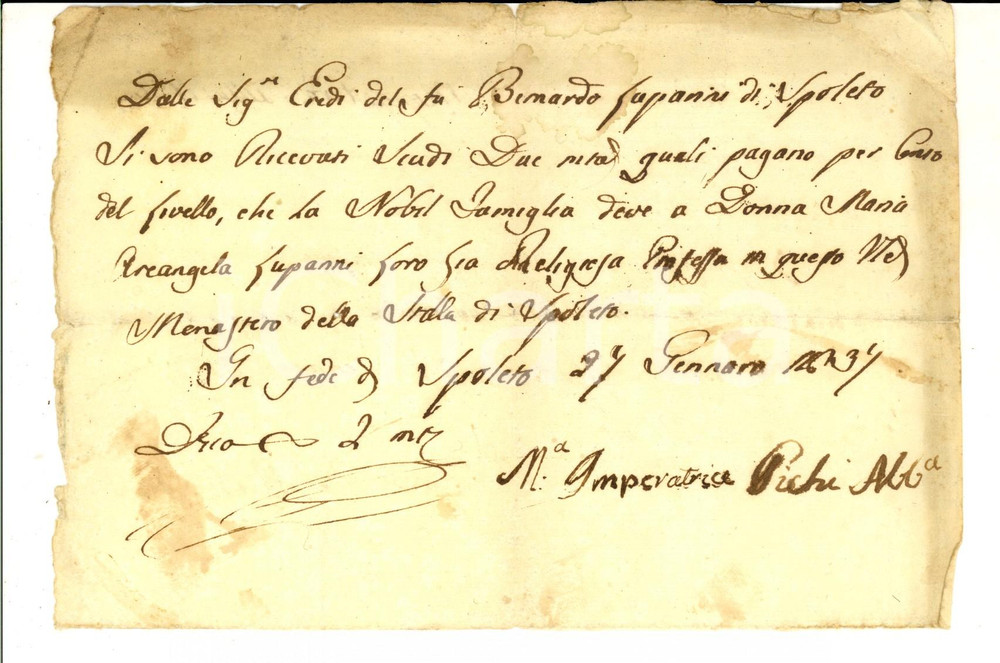 Dalle Sig.re Eredi del fu Bernardo Lupanni di Spoleto
Si sono Ricevuti Scudi Due mtã quali pagano per Conto
del livello, che la Nobil Famiglia deve a Donna Maria
Arcangela Lupanni loro Zia Religiosa Professa in questo Ved
Monastero della Stalla di Spoleto.
In fede d Spoleto 27 Gennaro
Dico 2 mtã
M.a Imperatrice Pichi Abb.a